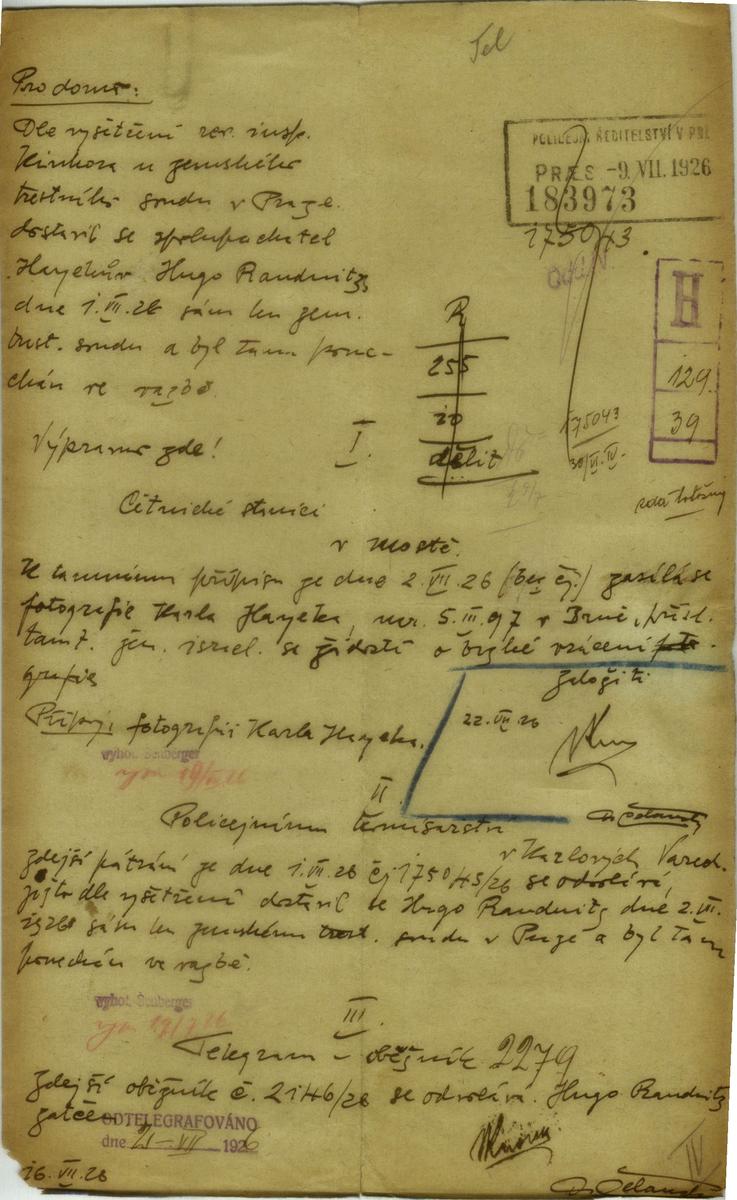 Tel
Pro domo:
Dle vyšetření rev. insp.
u zemského
trestního soudu v Praze
dostavil se spolupachatel
Hayekův Hugo Raudnitz
dne 1.VII.26 sám ku zem.
trest. soudu a byl tam pone-
chán ve vazbě.
Výpravno zde!
POLICEJNÍ ŘEDITELSTVÍ V PR
PRÆS -9. VII. 1926
183973
175043.
R
255
20
dělit
H
129
39
175043
I.
Četnické stanici
v Mostě.
K tamnímu přípisu ze dne 2.VII.26 (bez čj.) zasílá se
fotografie Karla Hayeka, nar. 5.III.97 v Brně, přísl.
tamt. žen. israel. se žádostí o brzké vrácení foto-
grafie
Příloy: fotografii Karla Hayeka.
založiti
22.VII 26
vyhot. Šenberger
II
Policejnímu komisařství
v Karlových Varech.
Zdejší pátrání ze dne 1.VII.26 čj 175043/26 se odvolává,
ježto dle vyšetření dostavil se Hugo Raudnitz dne 2.VII.
sám ku zemskému trest. soudu v Praze a byl tam
ponechán ve vazbě.
vyhot. Šenberger
III.
Telegram – oběžník 2279
Zdejší oběžník č. 2146/26 se odvolává. Hugo Raudnitz
zatčen
ODTELEGRAFOVÁNO
dne 21-VII 1926
IV
16.VII.26